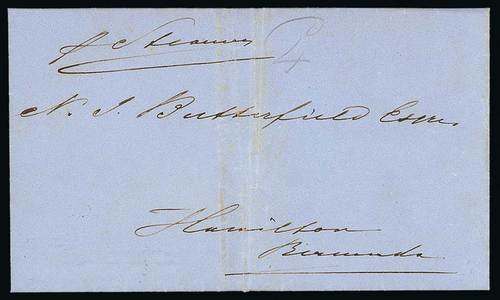 p Steamer 4
N. T. Butterfield Esqre.
Hamilton
Bermuda